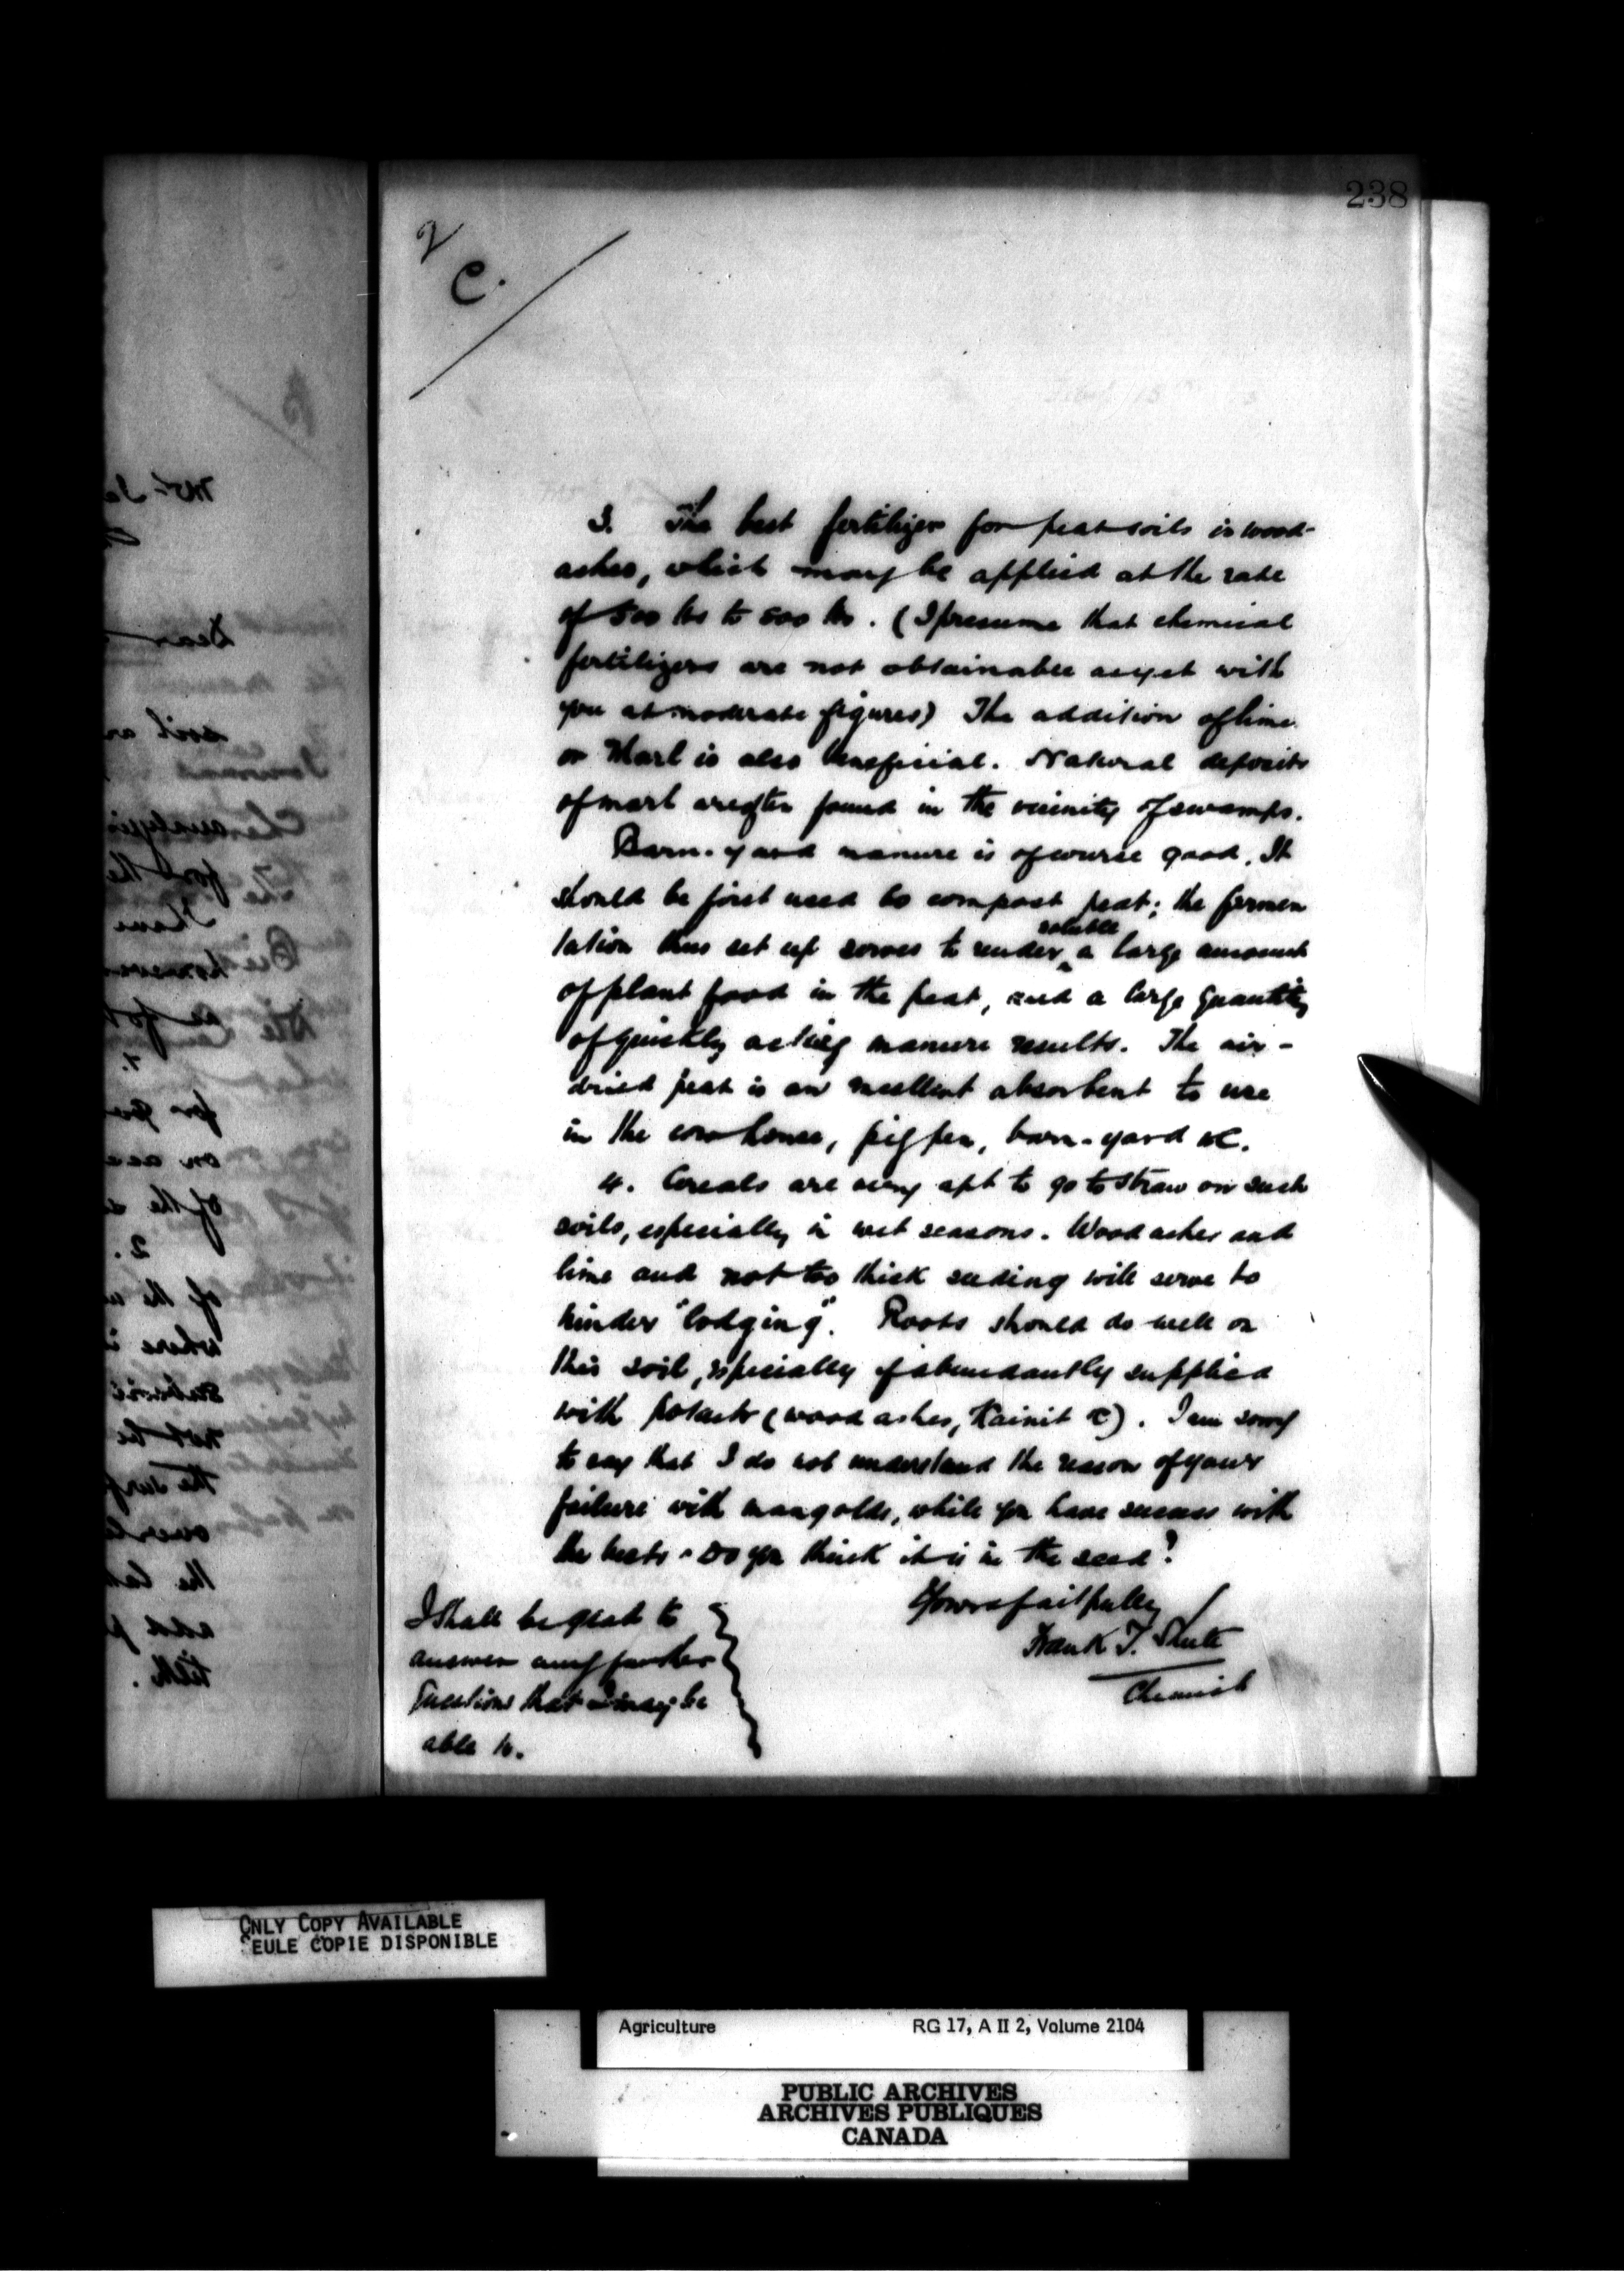 238
2
C.
3. The best fertilizer for peat soils is wood-
ashes, which may be applied at the rate
of 500 lbs to 500 lbs. (I presume that chemical
fertilizers are not obtainable as yet with
you at moderate figures) The addition of lime
or Marl is also beneficial. Natural deposits
of marl are often found in the vicinity of swamps.
Barn-yard manure is of course good. It
should be first used to compost peat; the fermen
tation thus set up serves to render soluble a large amount
of plant food in the peat, and a large quantity
of quickly acting manure results. The air-
dried peat is an excellent absorbent to use
in the cow house, pig pen, barn-yard &c.
4. Cereals are very apt to go to straw on such
soils, especially in wet seasons. Wood ashes and
lime and not too thick seeding will serve to
hinder "lodging". Roots should do well on
this soil, especially if abundantly supplied
with potash (wood ashes, Kainit &c). I am sorry
to say that I do not understand the reason of your
failure with mangolds, while you have success with
the beets. Do you think it is in the seed?
Yours faithfully
Frank T. Shutt
Chemist
I shall be glad to
answer any further
questions that I may be
able to.
ONLY COPY AVAILABLE
SEULE COPIE DISPONIBLE
Agriculture RG 17, A II 2, Volume 2104
PUBLIC ARCHIVES
ARCHIVES PUBLIQUES
CANADA